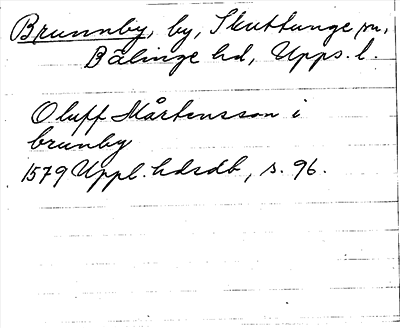 Brunnby, by, Skuttunge sn,
Bälinge hd, Upps. l.
Oluff Mårtensson i
brunby
1579 Uppl. hdsdb, s. 96.